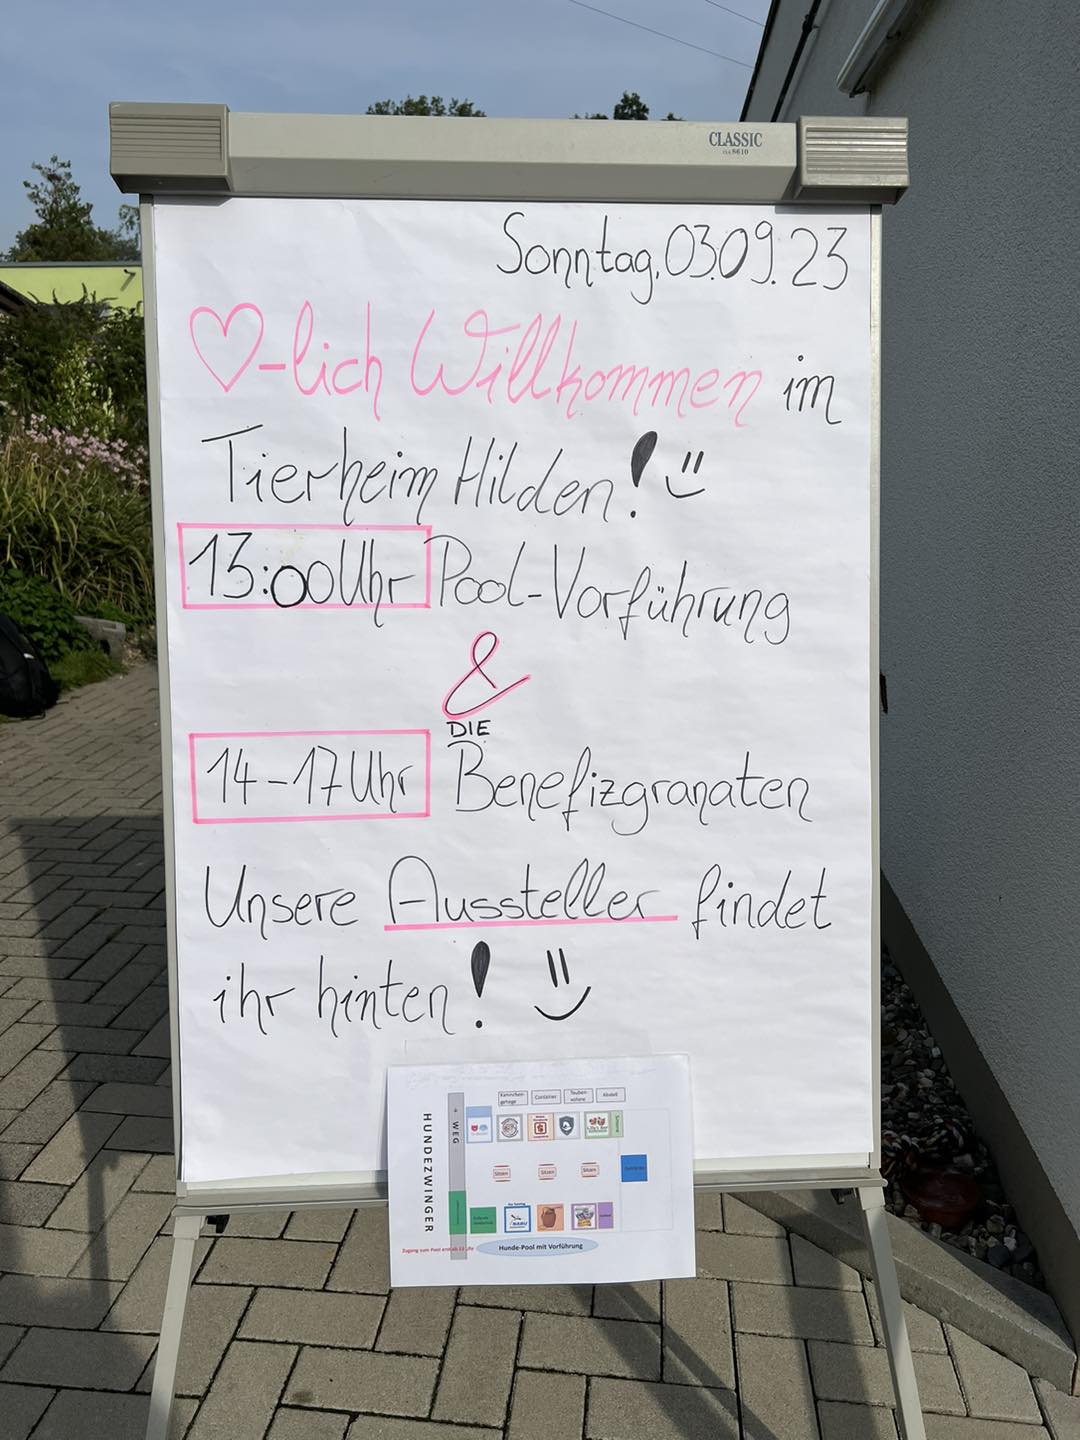 CLASSIC
Sonntag, 03.09.23
♡-lich Willkommen im
Tierheim Hilden!
13:00Uhr Pool-Vorführung
&
DIE
14-17Uhr Benefizgranaten
Unsere Aussteller findet
ihr hinten!
Kaninchen-
gehege
Container
Tauben-
voliere
WEG
HUNDEZWINGER
Sitzen
Sitzen
Sitzen
NABU
Hunde-Pool mit Vorführung